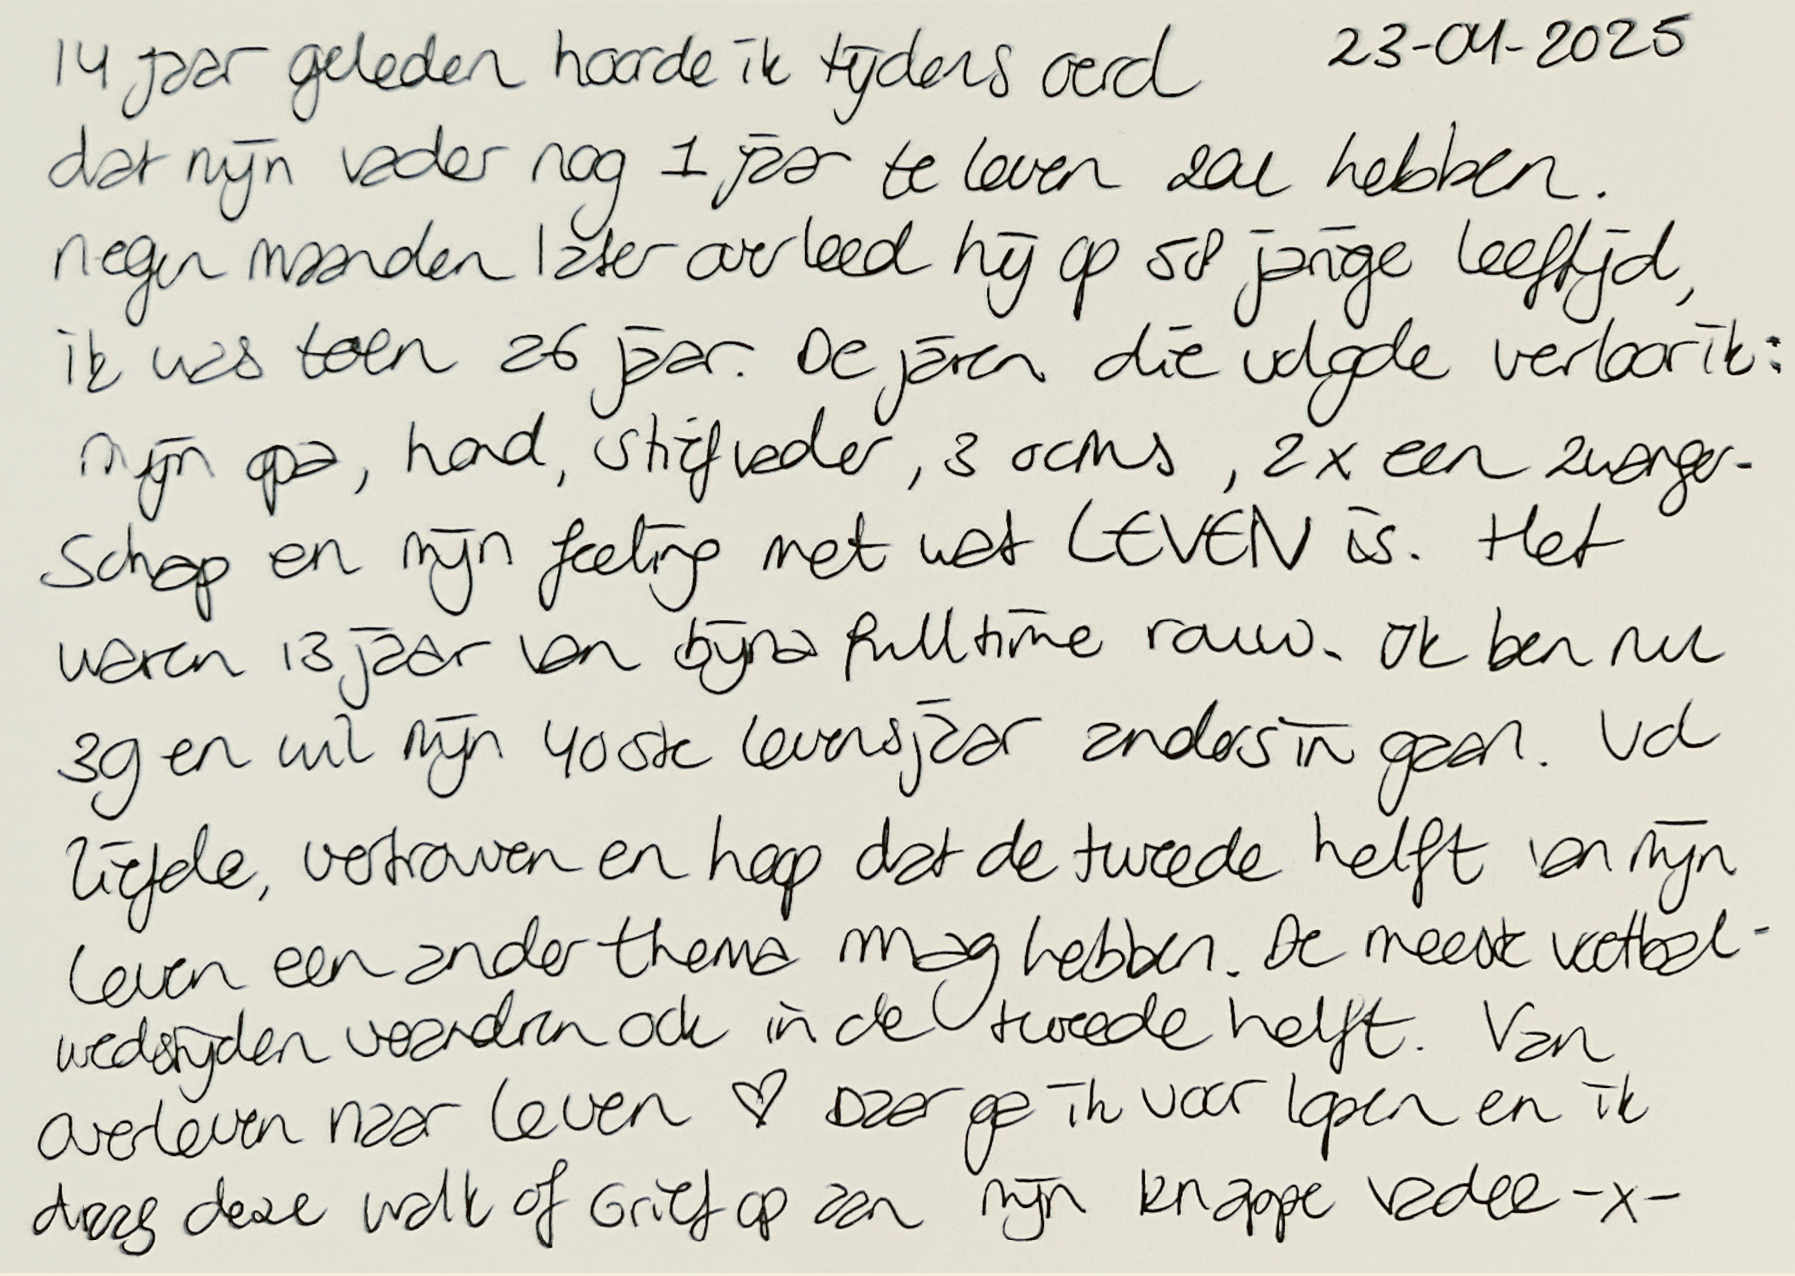 14 jaar geleden hoorde ik tijdens oerol 23-04-2025
dat mijn vader nog 1 jaar te leven zal hebben.
negen maanden later overleed hij op 58 jarige leeftijd,
ik was toen 26 jaar. De jaren die volgde verloor ik:
mijn opa, hond, stiefvader, 3 ooms, 2x een zwanger-
schap en mijn feeling met wat LEVEN is. Het
waren 13 jaar van bijna fulltime rouw. Ik ben nu
39 en wil mijn 40ste levensjaar anders in gaan. Vol
liefde, vertrouwen en hoop dat de tweede helft van mijn
leven een ander thema mag hebben. De meeste voetbal-
wedstrijden veranderen ook in de tweede helft. Van
overleven naar leven ♡ Daar ga ik voor lopen en ik
draag deze walk of Grief op aan mijn knappe vader -x-